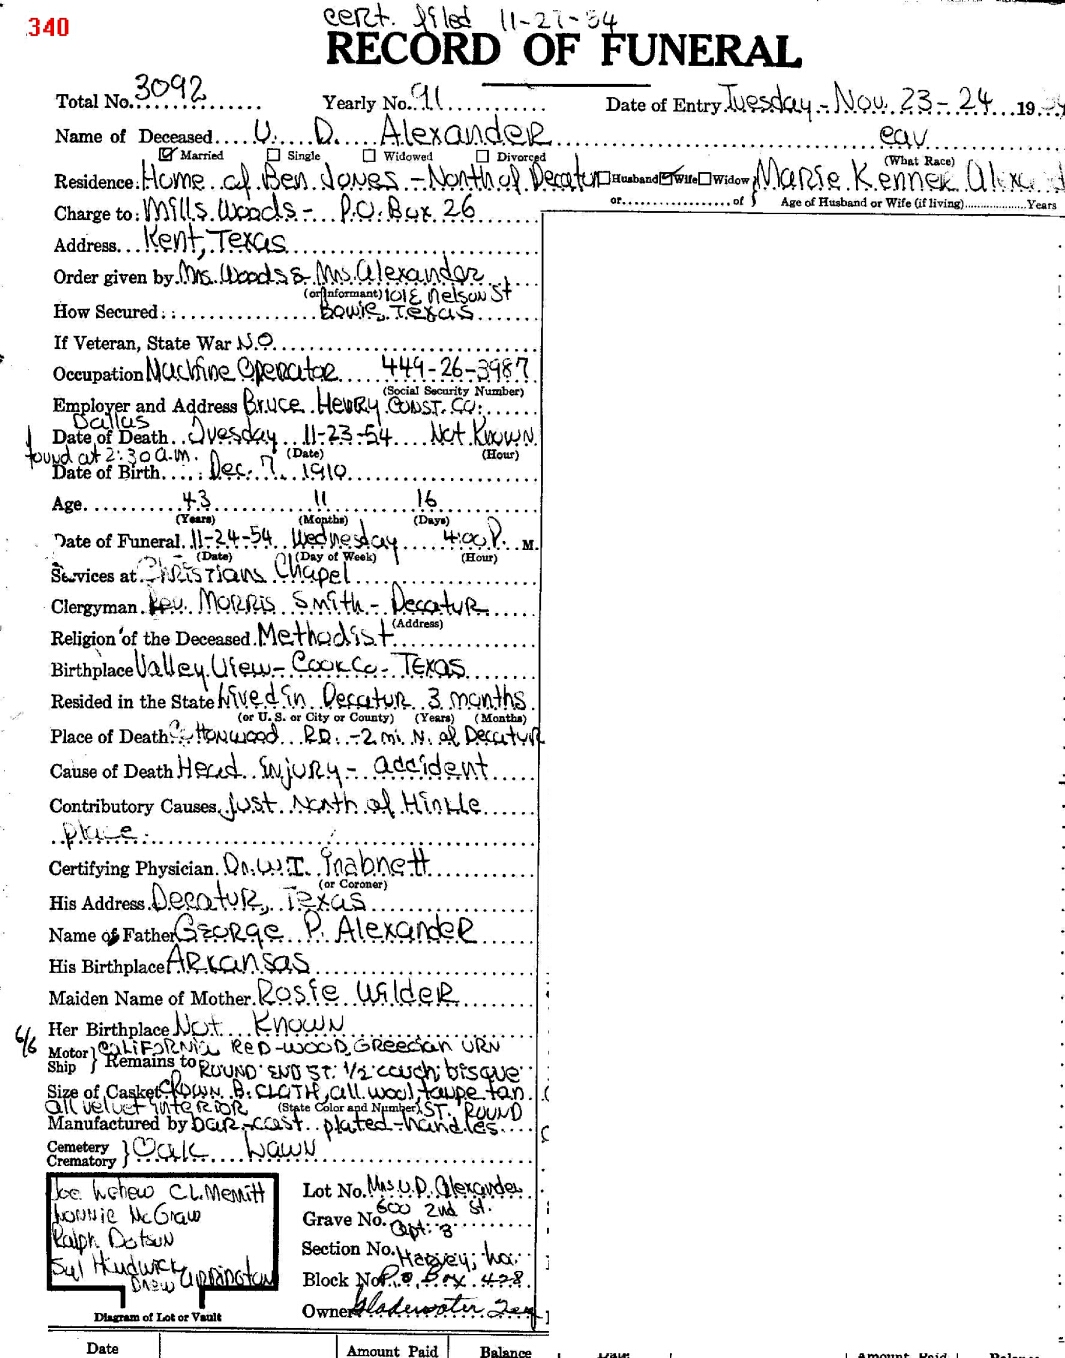 340
cert. filed 11-27-54
RECORD OF FUNERAL
Total No. 3092 Yearly No. 91 Date of Entry Tuesday - Nov. 23-24 19
Name of Deceased U. D. Alexander cav
☑ Married ☐ Single ☐ Widowed ☐ Divorced (What Race)
Residence: Home of Ben Jones - North of Decatur ☐ Husband ☑ Wife ☐ Widow Marie Kenner
or of Age of Husband or Wife (if living) Years
Charge to: Mills Woods - P.O. Box 26
Address Kent, Texas
Order given by Mrs. Woods & Mrs. Alexander
(or Informant) 101 E Nelson St
How Secured: Bowie, Texas
If Veteran, State War NO
Occupation Machine Operator 449-26-3987
(Social Security Number)
Employer and Address Bruce Henry Const. Co.
Dallas
Date of Death Tuesday 11-23-54 Not Known
found at 2:30 a.m. (Date) (Hour)
Date of Birth Dec. 7, 1910
Age 43 11 16
(Years) (Months) (Days)
Date of Funeral 11-24-54 Wednesday 4:00 P. M.
(Date) (Day of Week) (Hour)
Services at Christians Chapel
Clergyman Rev. Morris Smith - Decatur
(Address)
Religion of the Deceased Methodist
Birthplace Valley View - Cook Co - Texas
Resided in the State Lived in Decatur 3 months
(or U. S. or City or County) (Years) (Months)
Place of Death Cottonwood RD. - 2 mi. N. of Decatur
Cause of Death Head Injury - accident
Contributory Causes Just North of Hinkle
place.
Certifying Physician Dr. W.I. Inabnett
(or Coroner)
His Address Decatur, Texas
Name of Father George P. Alexander
His Birthplace Arkansas
Maiden Name of Mother Rosie Wilder
Her Birthplace Not Known
6/6
Motor Ship } Remains to California Red-wood, Greecian Urn
Round End St. 1/2 couch bisque
Size of Casket Crown B. Cloth, all wool, taupe tan
all velvet interior (State Color and Number) St. Round
Manufactured by bar-cast plated-handles
Cemetery Crematory } Oak Lawn
Joe C.L. Merritt
Lonnie McGraw
Ralph Dotson
Syl
Drew
Diagram of Lot or Vault
Lot No. Mrs U.D. Alexander
Grave No. 600 2nd St.
Apt. 3
Section No. Harvey, La.
Block No. P.O. Box 428
Owner Gladewater Tex
Date Amount Paid Balance Date Amount Paid Balance